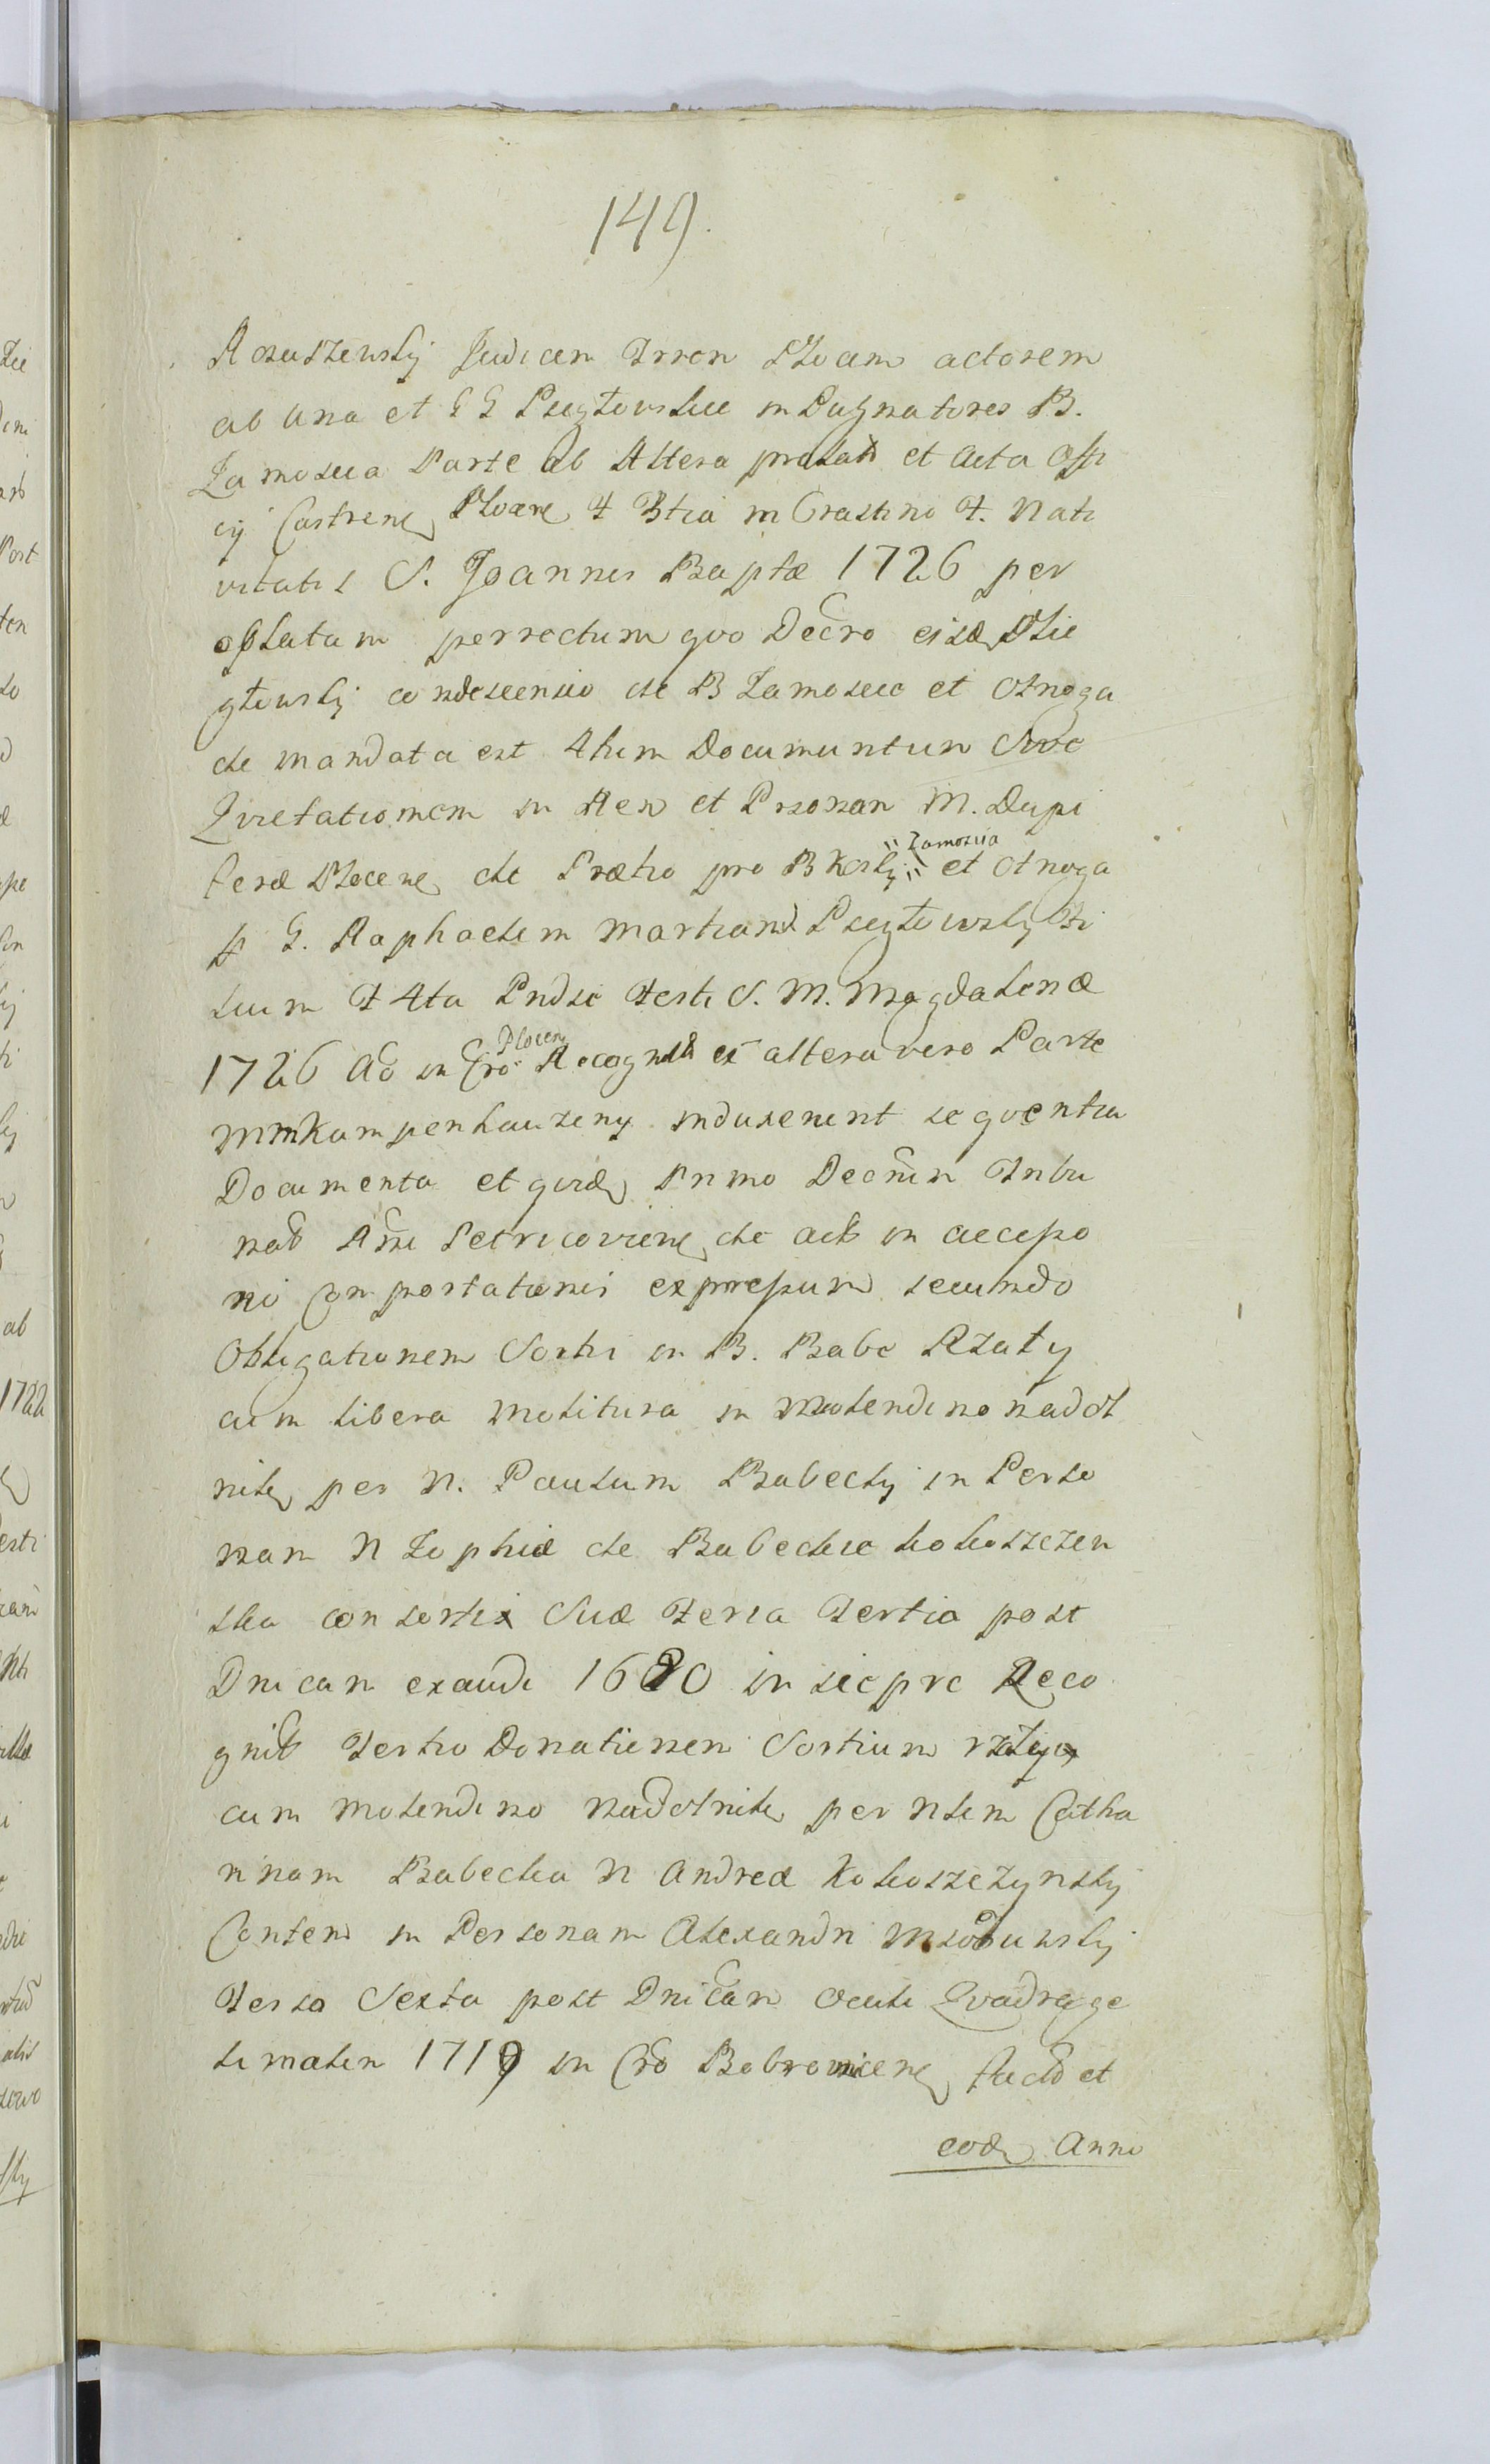 149.
Rosuszewskij Judicem Trren Plocen actorem
ab una et GG Psczytowskie inpugnatores B.
Zamoscia Parte ab Altera prolat et acta Offi
cij Castrens Plocens F 3tia in Crastino F. Nati
vitatis S. Joannis Baptæ 1726 per
oblatam perrectum quo Decro eisd
gtowskij condescensio de B Zamoscie et Osnoga
de mandata est 4tum Documentum Sive
Qvietationem in Rem et Prsonan M. Dupi
Plocens de Prætio pro B Koski Zamoscia et Osnoga
p G. Raphaelem Martian Psczytowskij
F 4ta Pridie Festi S. M. Magdalenæ
1726 Ao in Cro Plocen Recognit ex altera vero Parte
MM Kampenhauzeny induxerunt seqventia
Documenta et qvid Primo Decrum Tribu
nat Rni Petricoviens de act in accepo
nis Comportationis expressum secundo
Obligationem Sortis in B. Babe Rzaty
cum libera molitura in Molendino nadol
nik per N. Paulum Babecky in Perso
nam N Zophiæ de Babeckie Kokoszczyn
ska consortis Suæ Feria Tertia post
Dnicam exaudi 1680 in siepre Reco
gnit Tertio Donationem Sortium
cum Molendino Nadolnik per Nlem Catha
rinam Babecka N Andreæ Kokoszczynskij
Contem in Personam Alexandri
Feria Sexta post Dnicam Oculi Qvadrage
simalem 1719 in Cro Bobrownicens fact et
eod Anno